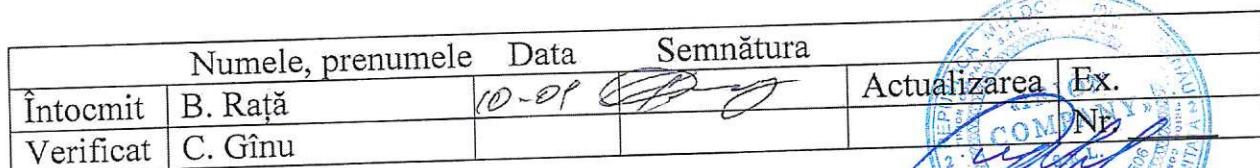 Numele, prenumele Data Semnătura
Întocmit B. Rață 10-01 Actualizarea Ex.
Verificat C. Gînu Nr.
COMPANY